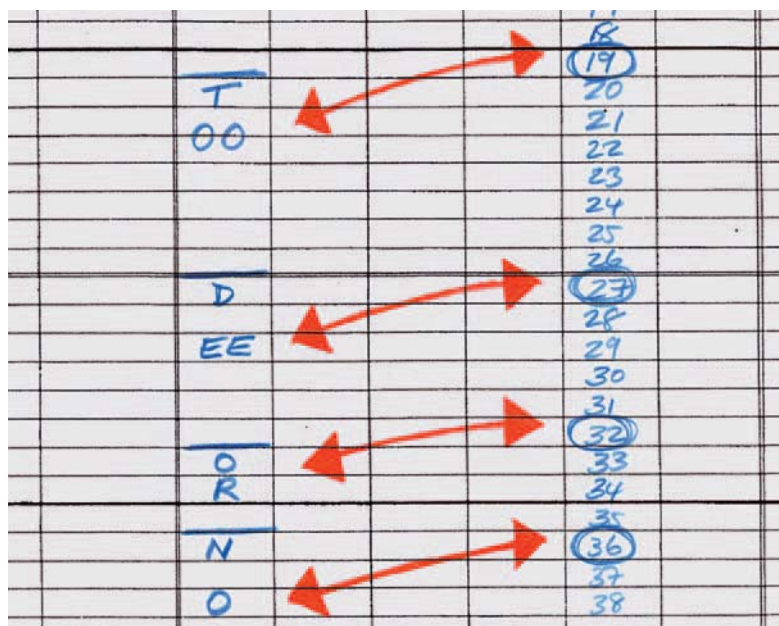 T
OO
D
EE
O
R
N
O
18
19
20
21
22
23
24
25
26
27
28
29
30
31
32
33
34
35
36
37
38